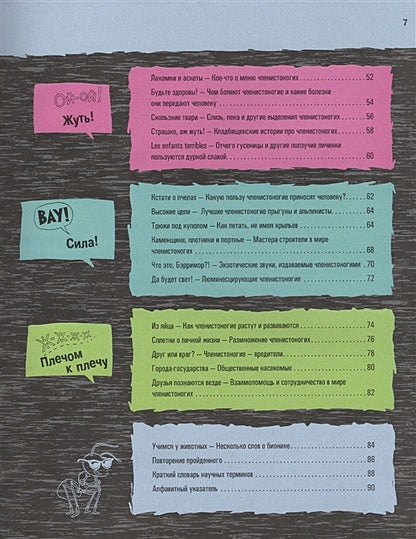 7
Ой-ой!
Жуть!
Лакомки и аскеты — Кое-что о меню членистоногих 52
Будьте здоровы! — Чем болеют членистоногие и какие болезни
они передают человеку 54
Скользкие твари — Слизь, пена и другие выделения членистоногих 56
Страшно, аж жуть! — Кладбищенские истории про членистоногих 58
Les enfants terribles — Отчего гусеницы и другие ползучие личинки
пользуются дурной славой 60
ВАУ!
Сила!
Кстати о пчелах — Какую пользу членистоногие приносят человеку? 62
Высокие цели — Лучшие членистоногие прыгуны и альпинисты 64
Трюки под куполом — Как летать, не имея крыльев 64
Каменщики, плотники и портные — Мастера-строители в мире
членистоногих 68
Что это, Бэрримор?! — Экзотические звуки, издаваемые членистоногими 70
Да будет свет! — Люминесцирующие членистоногие 72
Ж-ж-ж-ж
Плечом
к плечу
Из яйца — Как членистоногие растут и развиваются 74
Сплетни о личной жизни — Размножение членистоногих 76
Друг или враг? — Членистоногие — вредители 78
Города-государства — Общественные насекомые 80
Друзья познаются везде — Взаимопомощь и сотрудничество в мире
членистоногих 82
Учимся у животных — Несколько слов о бионике 84
Повторение пройденного 86
Краткий словарь научных терминов 88
Алфавитный указатель 90